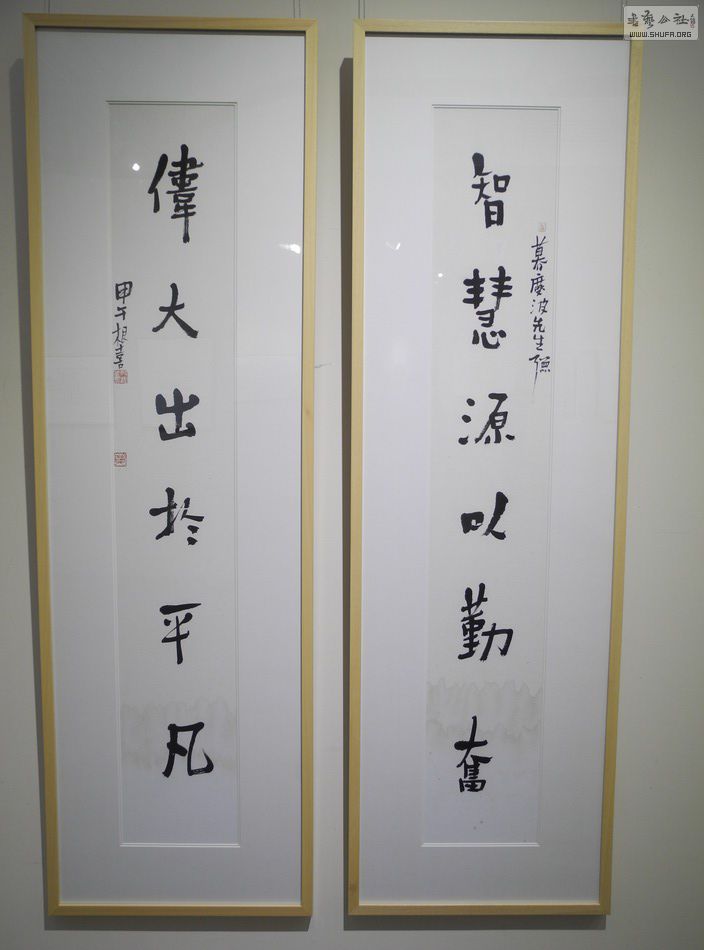 書藝公社
WWW.SHUFA.ORG
波先生
智慧源以勤奮
偉大出於平凡
甲午根喜